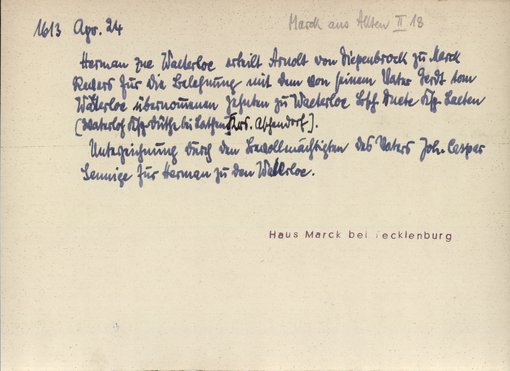 1613 Apr. 24
Marck aus Akten II 18
Herman zue Waterloe erteilt Arnolt von Diepenbrock zu Marck
Revers für die Belehnung mit dem von seinem Vater Gerdt tom
Waterloe übernommenen Zehnten zu Waterloe Bsch. Duete Ksp. Laeten
(Waterloh Ksp. Düthe bei Lathen Krs. Aschendorf).
Unterzeichnung durch den Bevollmächtigten des Vaters Joh. Caspar
für Herman zu den Waterloe.
Haus Marck bei Tecklenburg